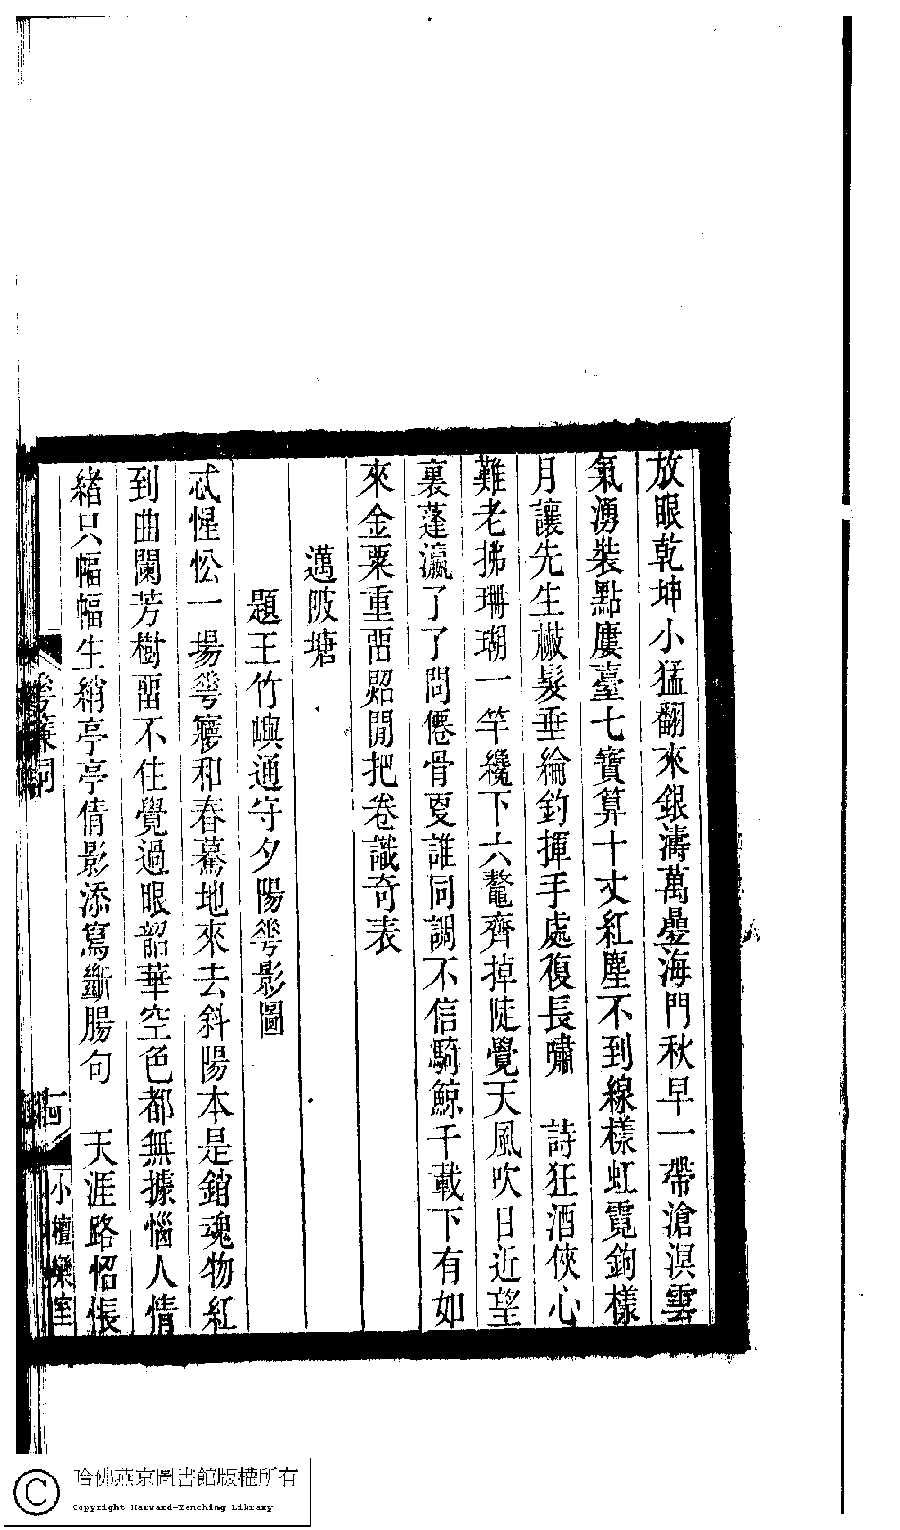 放眼乾坤小猛翻來銀濤萬疊海門秋早一帶滄溟雲
氣湧裝點廔臺七寶算十丈紅塵不到線樣虹霓鉤樣
月讓先生襳髮垂綸釣揮手處復長嘯　詩狂酒俠心
難老拂珊瑚一竿纔下六鼇齊掉陡覺天風吹日近望
裏蓬瀛了了問僊骨夏誰同調不信騎鯨千載下有如
來金粟重畱照閒把卷識奇表
邁陂塘
題王竹嶼通守夕陽雩影圖
忒惺忪一場雩㝱和春驀地來去斜陽本是銷魂物紅
到曲闌芳樹畱不住覺過眼韶華空色都無據惱人情
緒只幅幅生綃亭亭倩影添寫斷腸句　天涯路怊悵
雩簾詞
小檀欒室
哈佛燕京圖書館版權所有
Copyright Harvard-Yenching Library